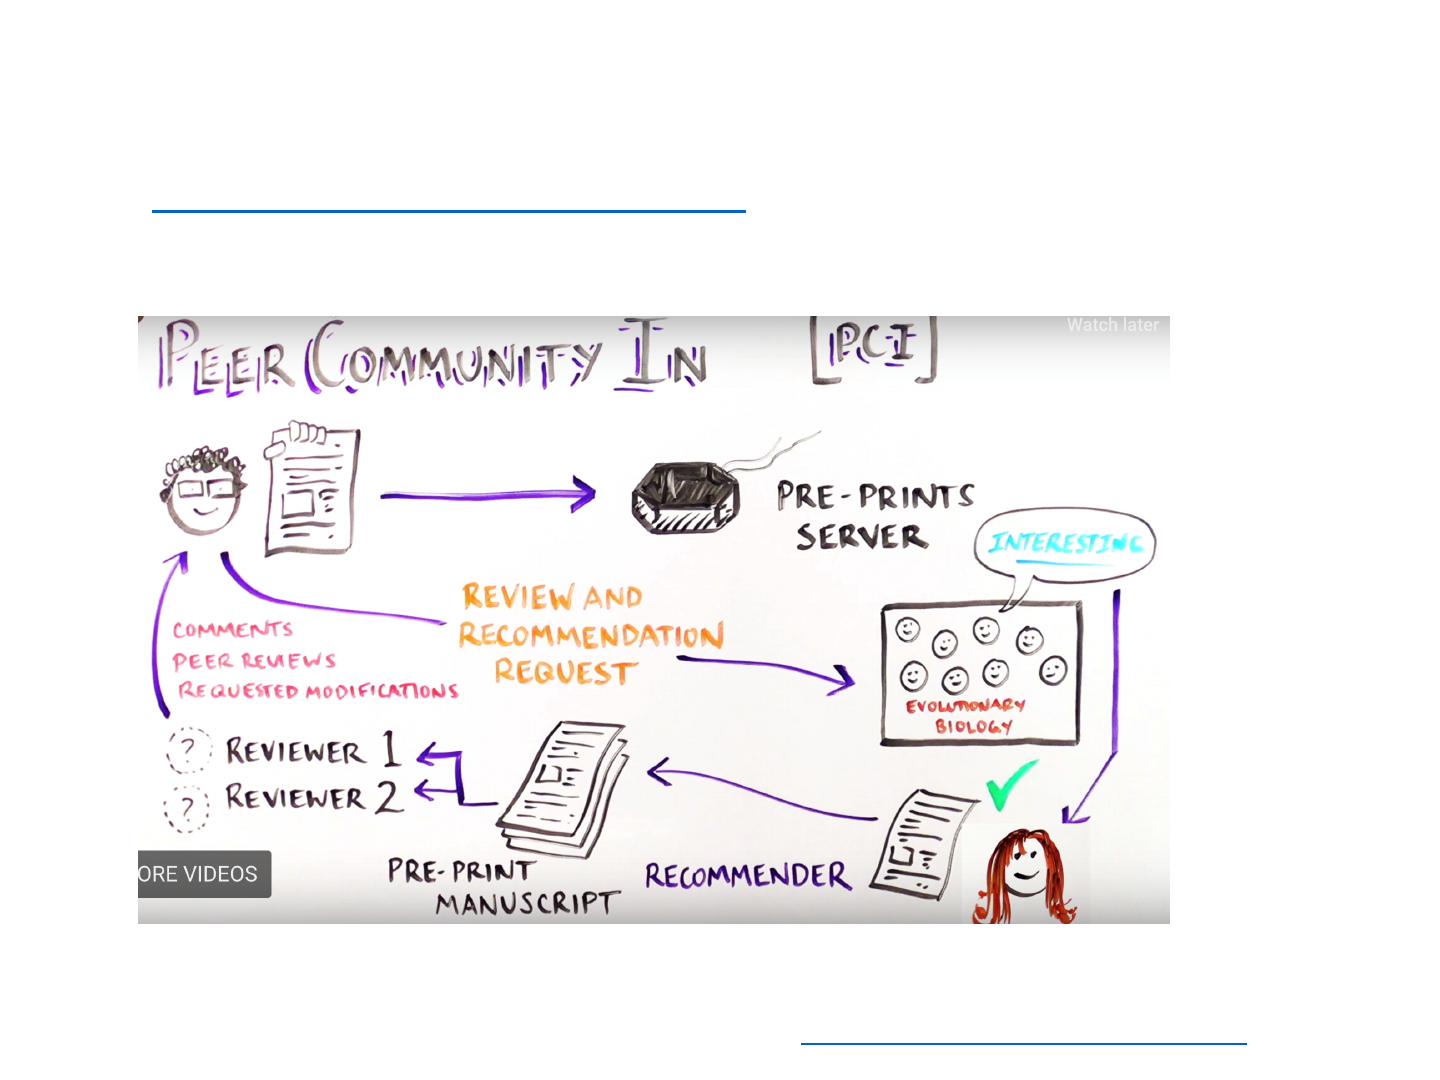 PEER COMMUNITY IN [PCI]
Watch later
PRE-PRINTS
SERVER
INTERESTING
REVIEW AND
RECOMMENDATION
REQUEST
COMMENTS
PEER REVIEWS
REQUESTED MODIFICATIONS
EVOLUTIONARY
BIOLOGY
? REVIEWER 1
? REVIEWER 2
ORE VIDEOS
PRE-PRINT
MANUSCRIPT
RECOMMENDER